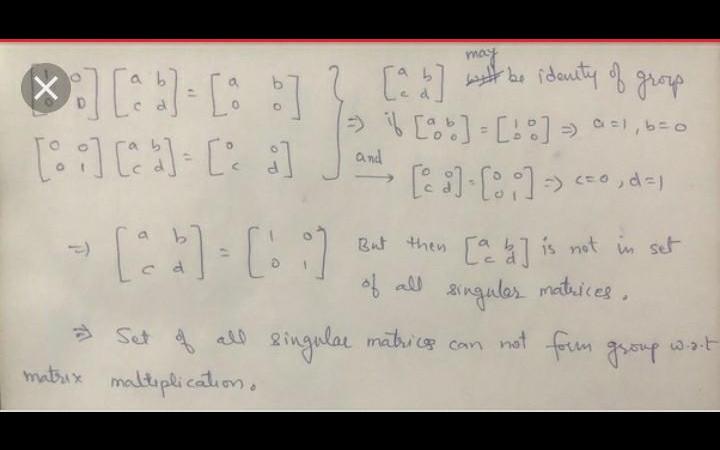 may
[1 0; 0 0] [a b; c d] = [a b; 0 0] } [a b; c d] be identity of group
⇒ if [a b; 0 0] = [1 0; 0 0] ⇒ a=1, b=0
[0 0; 0 1] [a b; c d] = [0 0; c d] and → [0 0; c d] = [0 0; 0 1] ⇒ c=0, d=1
⇒ [a b; c d] = [1 0; 0 1] But then [a b; c d] is not in set
of all singular matrices.
⇒ Set of all singular matrices can not form group w.r.t
matrix multiplication.